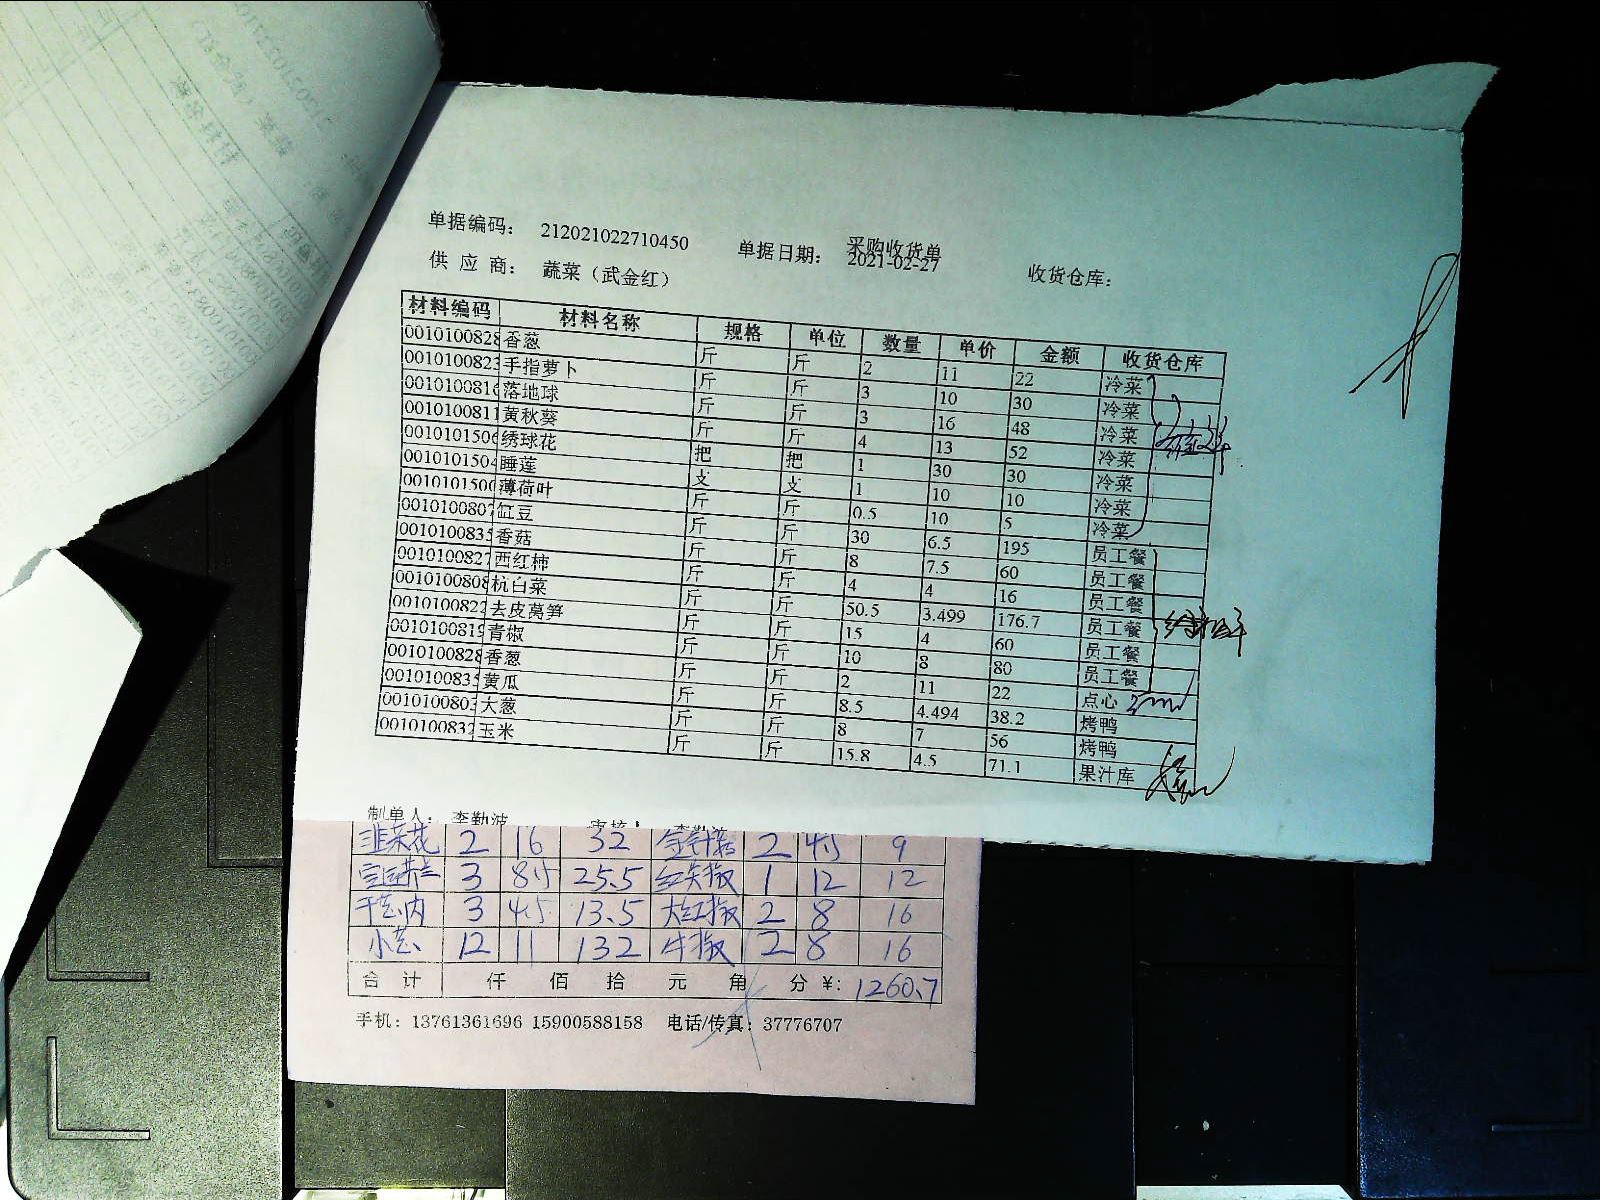 采购收货单
单据编码： 212021022710450 单据日期： 2021-02-27 收货仓库：
供 应 商： 蔬菜（武金红）
材料编码 材料名称 规格 单位 数量 单价 金额 收货仓库
0010100828 香葱 斤 斤 2 11 22 冷菜
0010100823 手指萝卜 斤 斤 3 10 30 冷菜
0010100816 落地球 斤 斤 3 16 48 冷菜
0010100811 黄秋葵 斤 斤 4 13 52 冷菜
0010101506 绣球花 把 把 1 30 30 冷菜
0010101504 睡莲 支 支 1 10 10 冷菜
0010101500 薄荷叶 斤 斤 0.5 10 5 冷菜
0010100807 缸豆 斤 斤 30 6.5 195 员工餐
0010100835 香菇 斤 斤 8 7.5 60 员工餐
0010100827 西红柿 斤 斤 4 4 16 员工餐
0010100808 杭白菜 斤 斤 50.5 3.499 176.7 员工餐
0010100822 去皮莴笋 斤 斤 15 4 60 员工餐
0010100819 青椒 斤 斤 10 8 80 员工餐
0010100828 香葱 斤 斤 2 11 22 点心
0010100835 黄瓜 斤 斤 8.5 4.494 38.2 烤鸭
0010100803 大葱 斤 斤 8 7 56 烤鸭
0010100832 玉米 斤 斤 15.8 4.5 71.1 果汁库
制单人： 李勤波
韭菜花 2 16 32 2 4.5 9
3 8.5 25.5 红尖椒 1 12 12
3 4.5 13.5 大红椒 2 8 16
小葱 12 11 132 牛椒 2 8 16
合 计 仟 佰 拾 元 角 分 ¥: 1260.7
手机：13761361696 15900588158 电话/传真：37776707